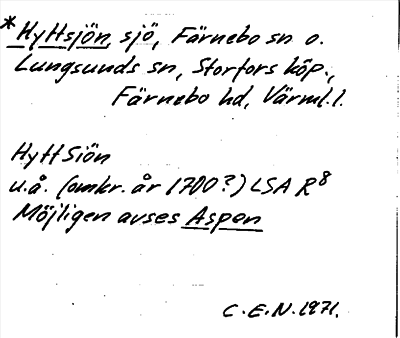 * Hyttsjön, sjö, Färnebo sn o.
Lungsunds sn, Storfors köp.,
Färnebo hd, Värml. l.
Hytt Siön
u.å. (omkr. år 1700?) LSA R8
Möjligen avses Aspen
C.E.N. 1971.